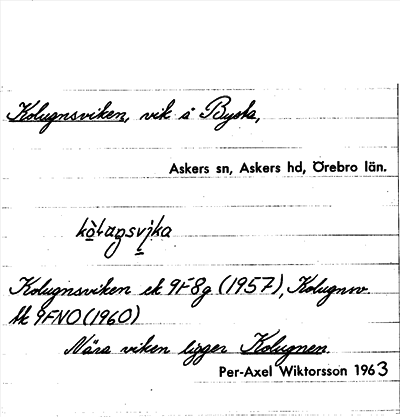 Kolugnsviken, vik å Bysta,
Askers sn, Askers hd, Örebro län.
kò̱lagsvi̱ka
Kolugnsviken ek 9F8g (1957), Kolugnsv.
tk 9FNO (1960)
Nära viken ligger Kolugnen.
Per-Axel Wiktorsson 1963